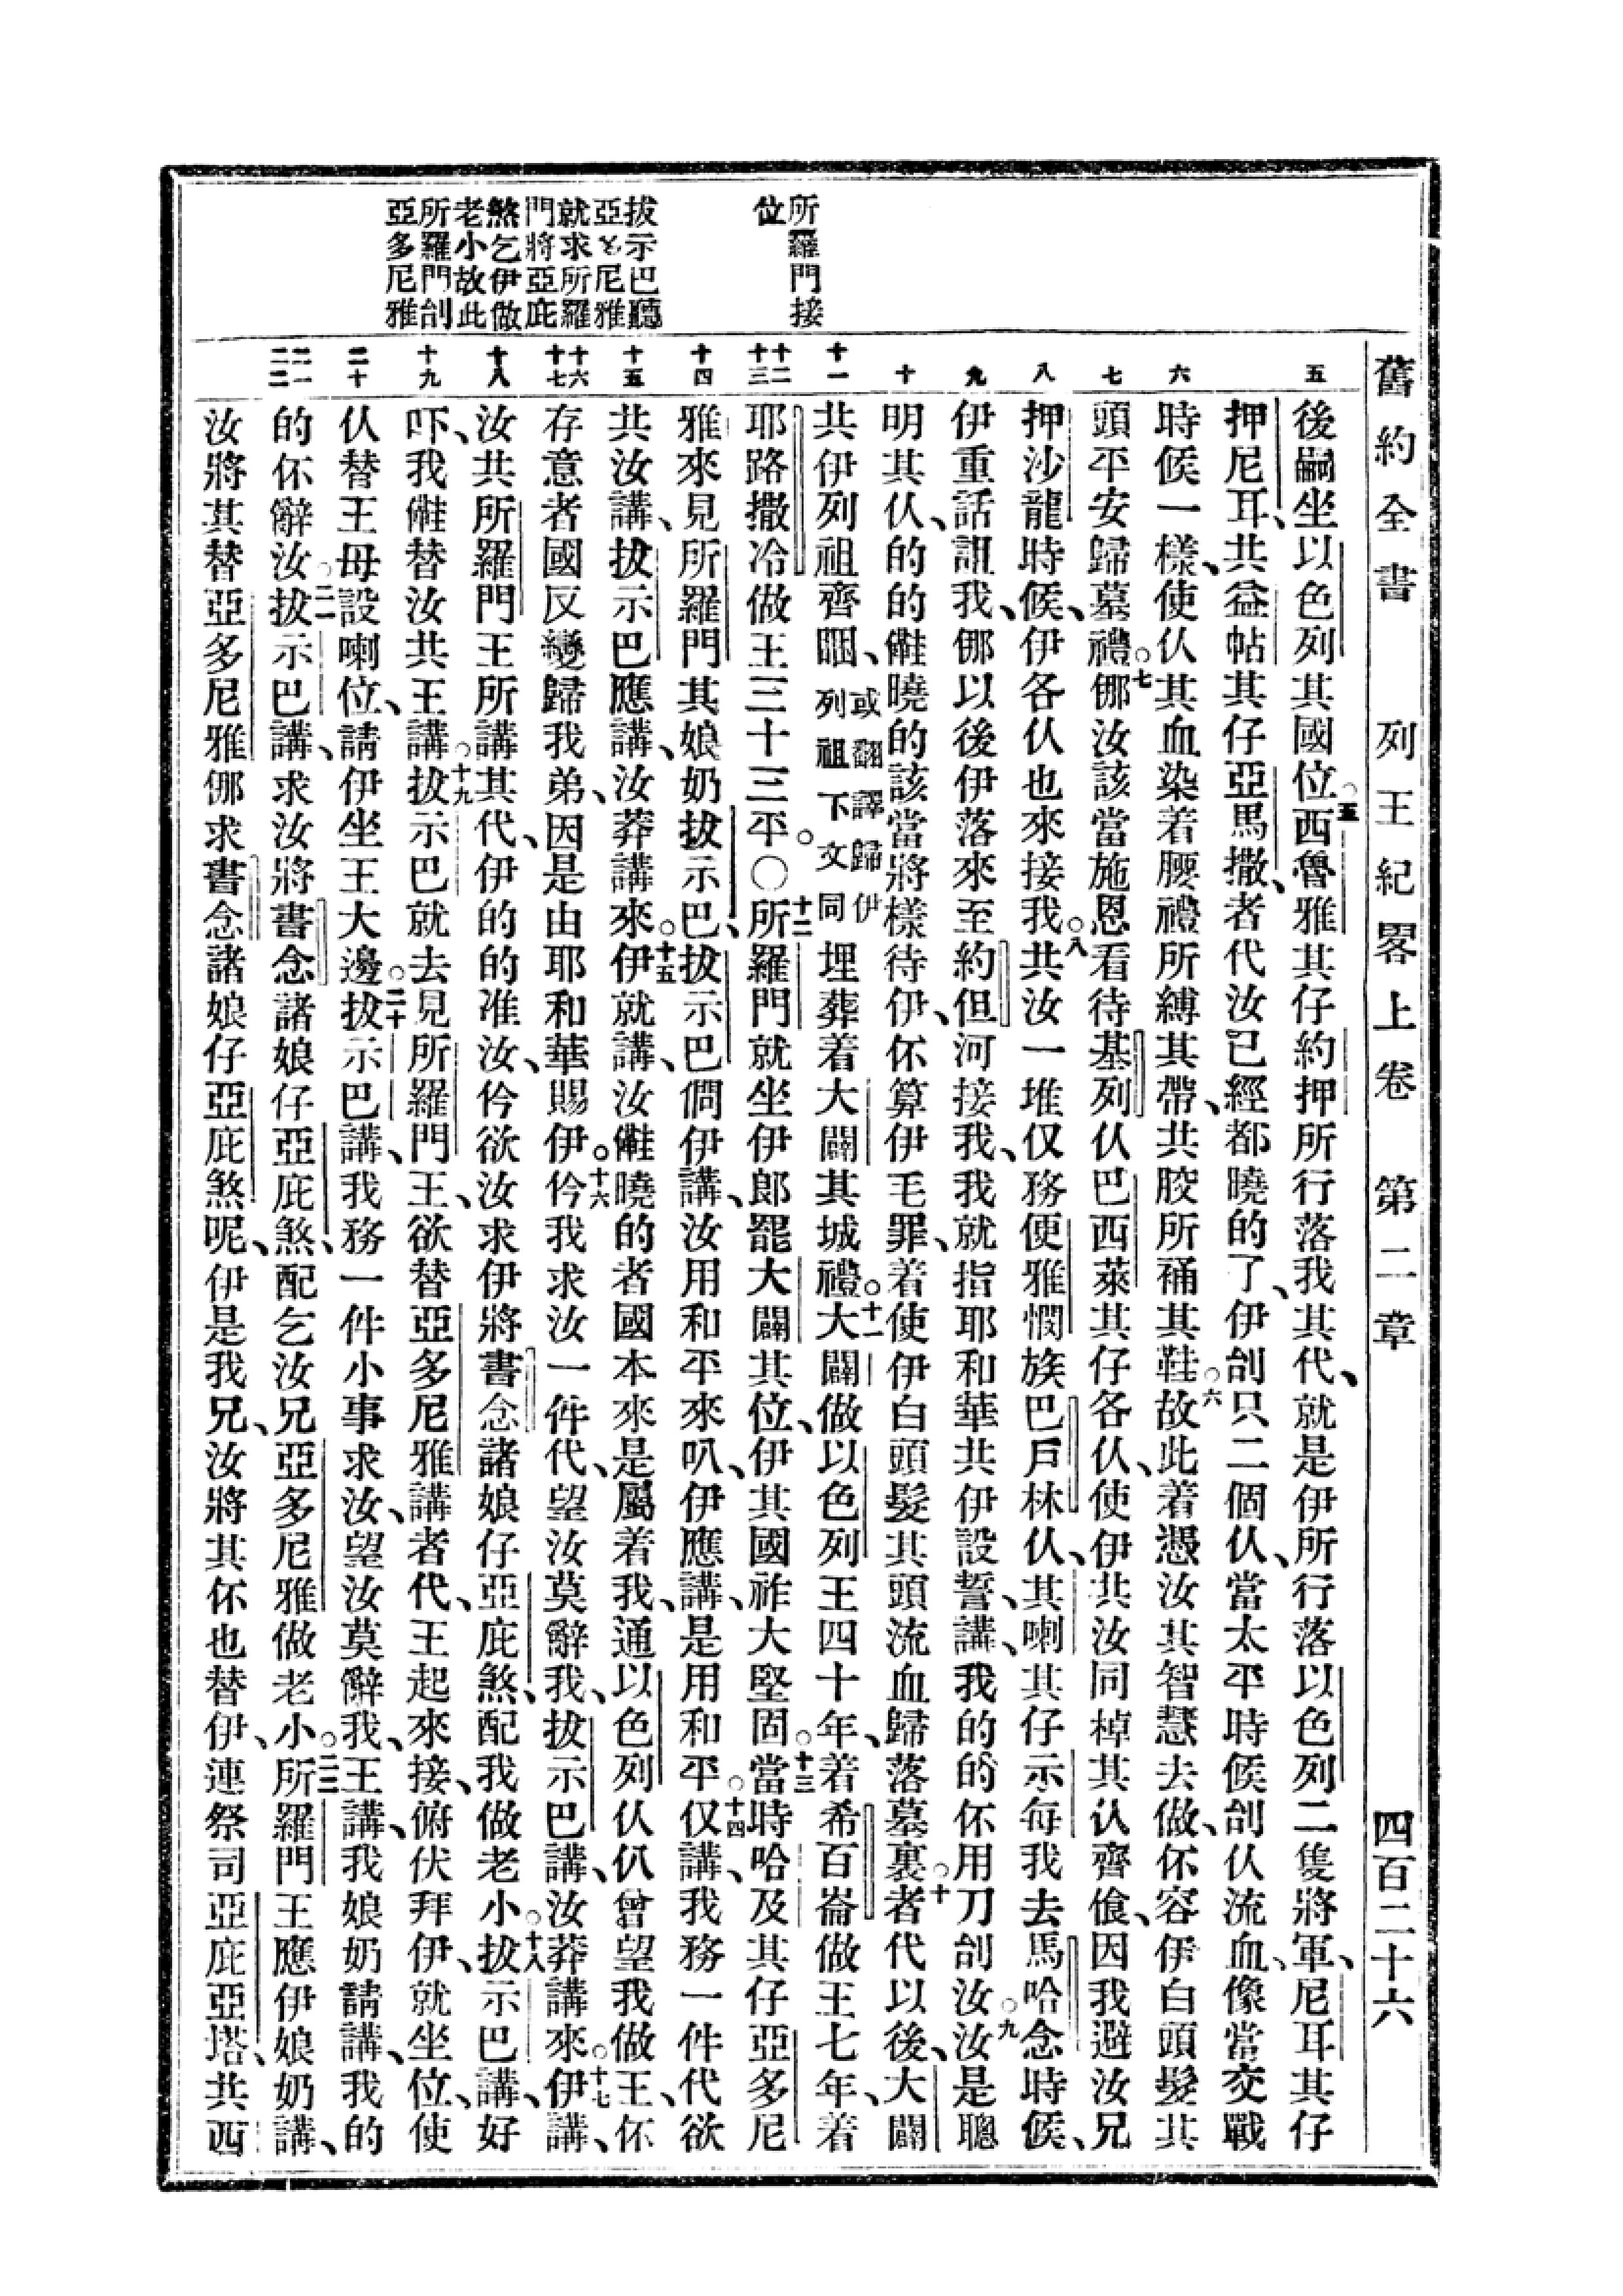 舊約全書 列王紀畧上卷 第二章 四百二十六
所羅門接
位
拔示巴聽
亞多尼雅
就求所羅
門將亞庇
煞乞伊做
老小故此
所羅門刣
亞多尼雅
五
六
七
八
九
十
十一
十二
十三
十四
十五
十六
十七
十八
十九
二十
二一
二二
後嗣坐以色列其國位○五西魯雅其仔約押所行落我其代、就是伊所行落以色列二隻將軍、尼耳其仔
押尼耳、共益帖其仔亞馬撒、者代汝已經都曉的了、伊刣只二個仈、當太平時候刣仈流血、像當交戰
時候一樣、使仈其血染着腰禮所縛其帶、共胶所䄛其鞋○六故此着憑汝其智慧去做、伓容伊白頭髮其
頭平安歸墓禮○七㑚汝該當施恩看待基列仈巴西萊其仔各仈、使伊共汝同棹其仈齊飡、因我避汝兄
押沙龍時候、伊各仈也來接我○八共汝一堆仅務便雅憫族巴戶林仈、其喇其仔示每我去馬哈念時候、
伊重話詛我、㑚以後伊落來至約但河接我、我就指耶和華共伊設誓、講、我的的伓用刀刣汝○九汝是聰
明其仈、的的𫢪曉的該當將樣待伊、伓算伊毛罪、着使伊白頭髮其頭流血歸落墓裏○十者代以後、大闢
共伊列祖齊睏、或翻譯歸伊列祖下文同埋葬着大闢其城禮○十一大闢做以色列王四十年、着希百崙做王七年、着
耶路撒冷做王三十三年。〇十二所羅門就坐伊郎罷大闢其位、伊其國祚大堅固○十三當時哈及其仔亞多尼
雅來見所羅門其娘奶拔示巴、拔示巴問伊講、汝用和平來叭、伊應講、是用和平○十四仅講、我務一件代欲
共汝講、拔示巴應講、汝莽講來○十五伊就講、汝𫢪曉的者國本來是屬着我、通以色列仈仈曾望我做王、伓
存意者國反變歸我弟、因是由耶和華賜伊○十六伱我求汝一件代、望汝莫辭我、拔示巴講、汝莽講來○十七伊講、
汝共所羅門王所講其代、伊的的准汝、伱欲汝求伊將書念諸娘仔亞庇煞、配我做老小○十八拔示巴講、好
吓、我𫢪替汝共王講○十九拔示巴就去見所羅門王、欲替亞多尼雅講者代、王起來接、俯伏拜伊、就坐位、使
仈替王母設喇位、請伊坐王大邊○二十拔示巴講、我務一件小事求汝、望汝莫辭我、王講、我娘奶請講、我的
的伓辭汝○二一拔示巴講、求汝將書念諸娘仔亞庇煞、配乞汝兄亞多尼雅做老小○二二所羅門王應伊娘奶講、
汝將其替亞多尼雅㑚求書念諸娘仔亞庇煞呢、伊是我兄、汝將其伓也替伊、連祭司亞庇亞塔、共西